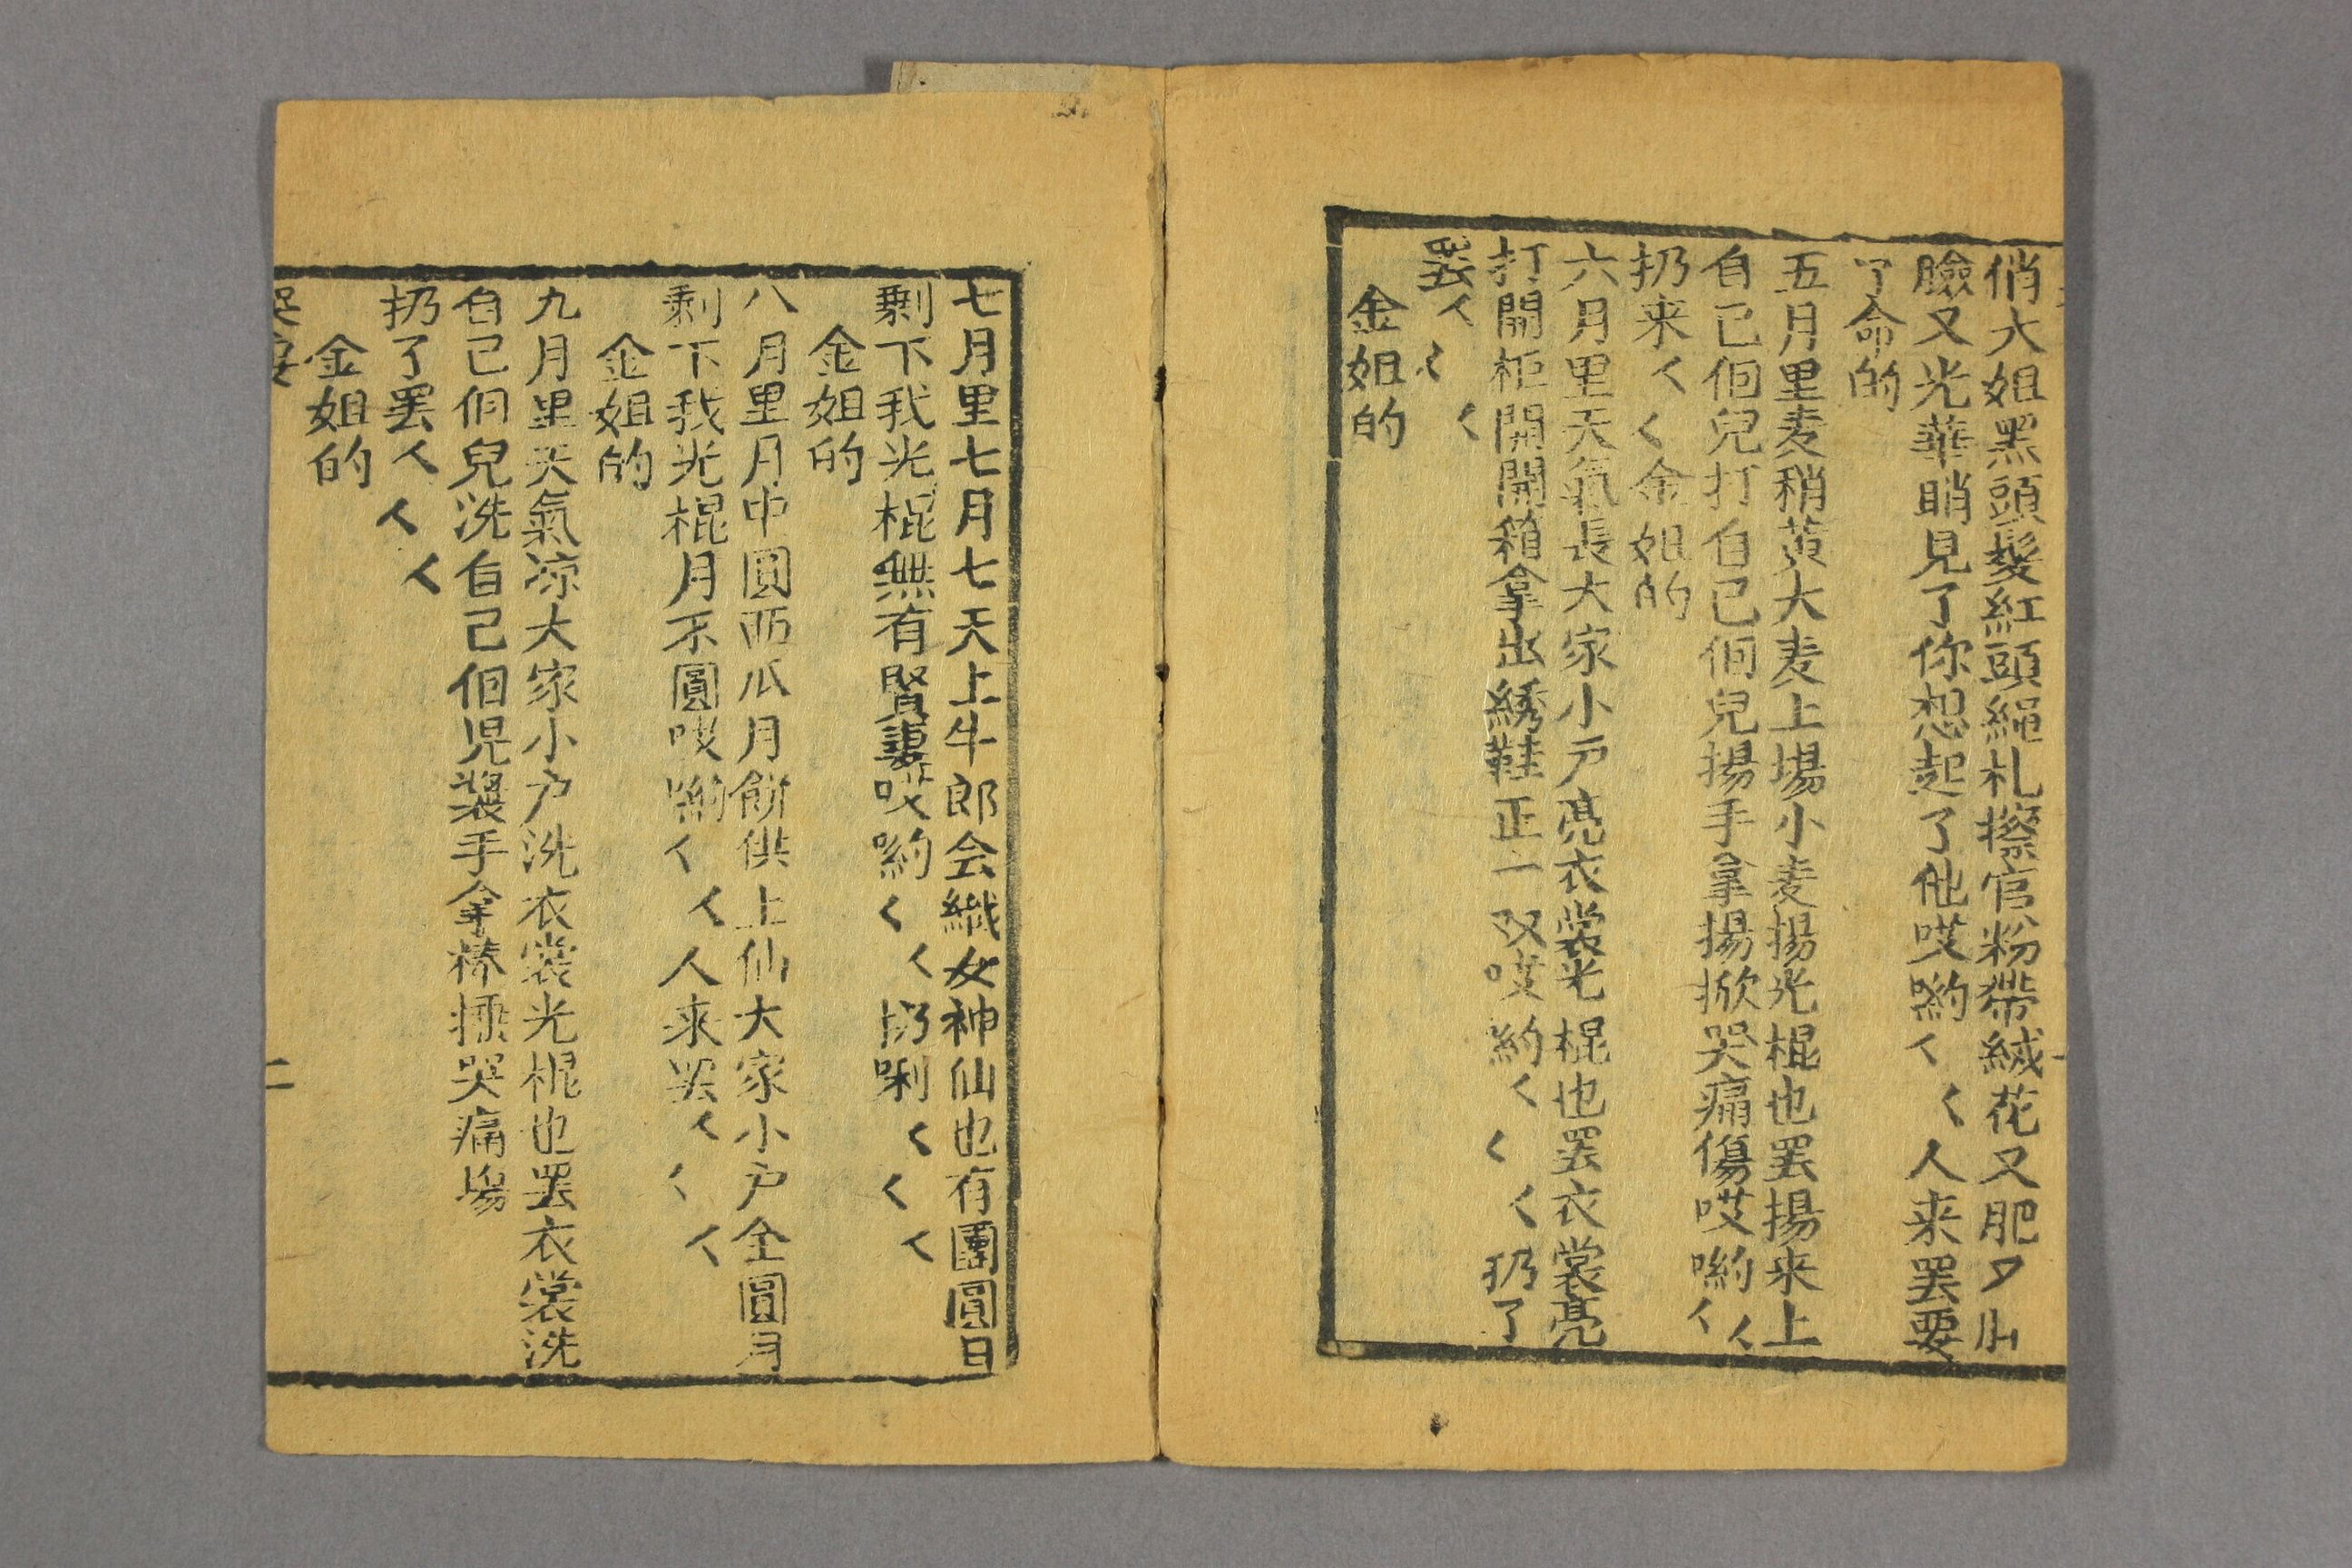 俏大姐黑頭髮紅頭繩札擦官粉帶絨花又肥夕山
臉又光華睄見了你想起了他哎喲〱〱人来罢要
了命的
五月里麦稍黄大麦上場小麦揚光棍也罢揚来上
自己個兒打自己個兒揚手拿揚掀哭痛傷哎喲〱〱
扔来〱〱金姐的
六月里天氣長大家小户亮衣裳光棍也罢衣裳亮
打開柜開開箱拿出綉鞋正一双哎約〱〱〱扔了
罢〱〱〱
金姐的
七月里七月七天上牛郎会織女神仙也有團圓日
剩下我光棍無有賢妻哎喲〱〱扔唎〱〱〱
金姐的
八月里月中圓西瓜月餅供上仙大家小户全圓月
剩下我光棍月不圓哎喲〱〱人来罢〱〱〱
金姐的
九月里天氣凉大家小户洗衣裳光棍也罢衣裳洗
自己個兒洗自己個児漿手拿棒捶哭痛塲
扔了罢〱〱〱
金姐的
哭
二